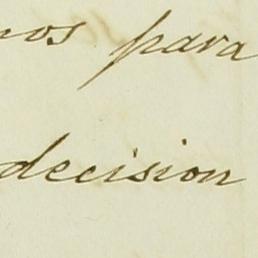 para
decision